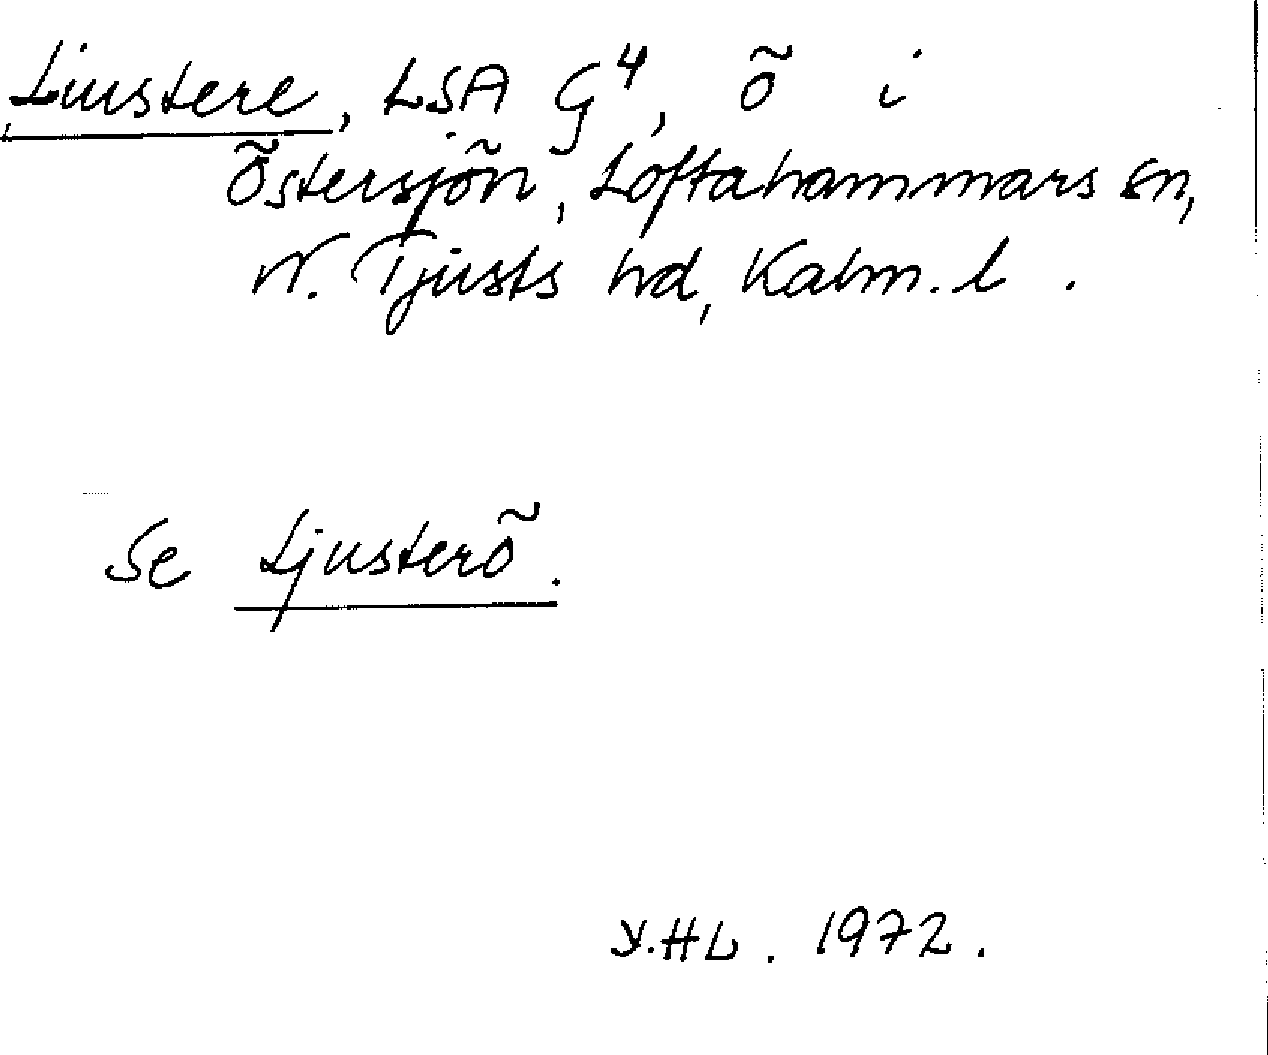 Liustere, LSA G4, ö i
Östersjön, Loftahammars sn,
N. Tjusts hd, Kalm. l.
Se Ljusterö.
Y.HL. 1972.